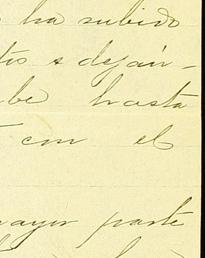 ha subido
s deján-
be hasta
con el
mayor parte